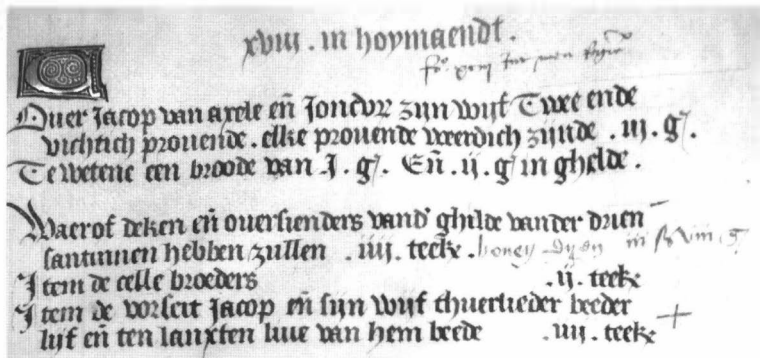 xviij . in hoymaendt .
Ouer Jacop van axele en̄ Joncvr zijn wijf Twee ende
vichtich prouende . elke prouende weerdich zijnde . iij . g̛ .
Te wetene een broode van J . g̛ . En̄ . ij . g̛ in ghelde .
Waerof deken en̄ ouersienders vand' ghilde vander drien
santinnen hebben zullen . iiij . teek̛ .
Item de celle broeders . ij . teek̛
Item de vorseit Jacop en̄ sijn wijf thuerlieder beeder
lijf en̄ ten lanxten liue van hem beede . iiij . teek̛ +